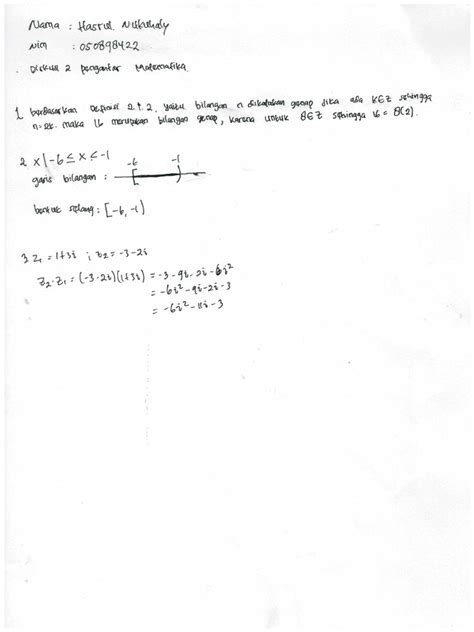 Nama : Hasrul Nukuhaly
Nim : 050898422
Diskusi 2 pengantar Matematika.
1 berdasarkan Definisi 2.1.2, yaitu bilangan n dikatakan genap jika ada k∈Z sehingga
n=2k. maka 16 merupakan bilangan genap, karena untuk 8∈Z sehingga 16 = 8(2).
2 x|-6≤x<-1
-6 -1
garis bilangan :
bentuk selang : [-6,-1)
3. z₁ = 1+3i ; z₂ = -3-2i
z₂.z₁ = (-3-2i)(1+3i) = -3-9i-2i-6i²
= -6i²-9i-2i-3
= -6i²-11i-3